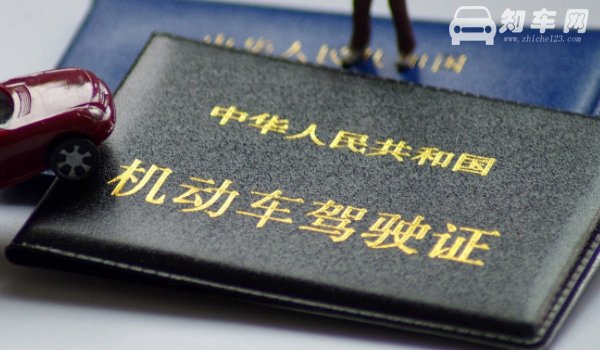 知车网
www.zhiche123.com
中华人民共和国
中华人民共和国
机动车驾驶证